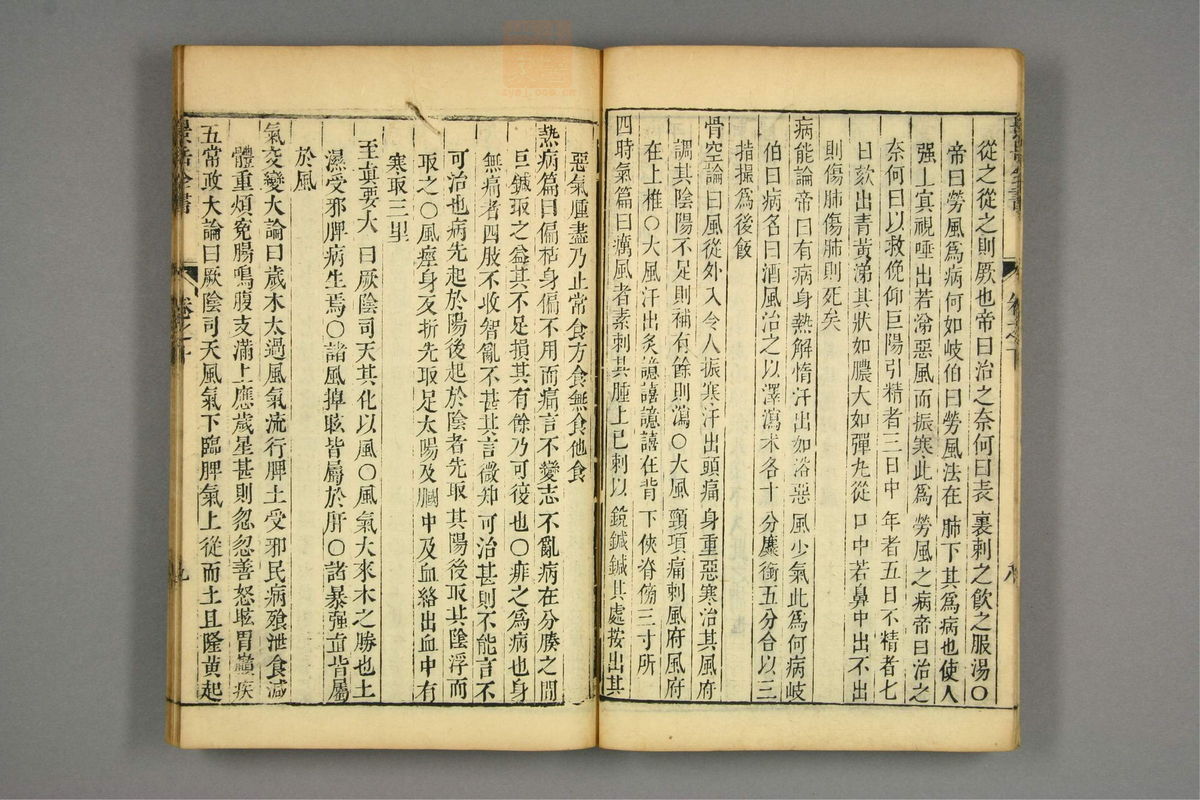 從之從之則厥也帝曰治之奈何曰表裏刺之飲之服湯〇
帝曰勞風爲病何如岐伯曰勞風法在肺下其爲病也使人
强上冥視唾出若涕惡風而振寒此爲勞風之病帝曰治之
奈何曰以救俛仰巨陽引精者三日中年者五日不精者七
日欬出青黃涕其狀如膿大如彈丸從口中若鼻中出不出
則傷肺傷肺則死矣
病能論帝曰有病身熱解惰汗出如浴惡風少氣此爲何病岐
伯曰病名曰酒風治之以澤瀉术各十分麋銜五分合以三
指撮爲後飯
骨空論曰風從外入令人振寒汗出頭痛身重惡寒治其風府
調其陰陽不足則補有餘則瀉〇大風頸項痛刺風府風府
在上椎〇大風汗出灸譩譆譩譆在背下俠脊傍三寸所
四時氣篇曰癘風者素刺其腫上已刺以銳鍼鍼其處按出其
惡氣腫盡乃止常食方食無食他食
熱病篇曰偏枯身偏不用而痛言不變志不亂病在分腠之間
巨鍼取之益其不足損其有餘乃可復也〇痱之爲病也身
無痛者四肢不收智亂不甚其言微知可治甚則不能言不
可治也病先起於陽後起於陰者先取其陽後取其陰浮而
取之〇風痙身反折先取足太陽及膕中及血絡出血中有
寒取三里
至眞要大 曰厥陰司天其化以風〇風氣大來木之勝也土
濕受邪脾病生焉〇諸風掉眩皆屬於肝〇諸暴强直皆屬
於風
氣交變大論曰歲木太過風氣流行脾土受邪民病飧泄食減
體重煩寃腸鳴腹支滿上應歲星甚則忽忽善怒眩冒巔疾
五常政大論曰厥陰司天風氣下臨脾氣上從而土且隆黃起